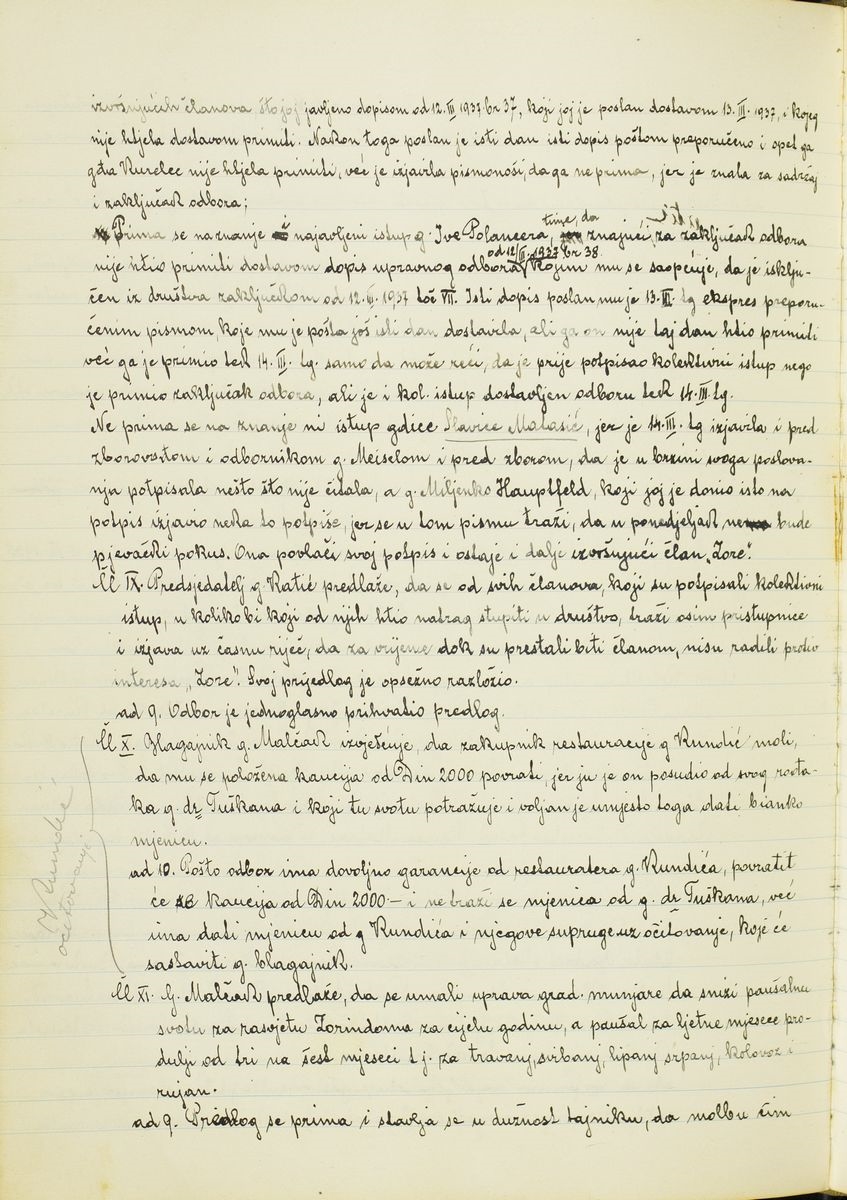 izvršnujućih članova što joj javljeno dopisom od 12. III 1937 br 37, koji joj je poslan dostavom 13. III. 1937, i kojeg
nije htjela dostavom primiti. Nakon toga poslan je isti dan isti dopis poštom preporučeno i opet ga
gđa Kurelec nije htjela primiti, već je izjavila pismonoši, da ga ne prima, jer je znala za sadržaj
i zaključak odbora;
Prima se na znanje najavljeni istup g. Ive Polancera, time, da znajući, za zaključak odbora
nije htio primiti dostavom dopis upravnog odbora od 12 III. 1937 br 38 kojim mu se saopćuje, da je isklju-
čen iz društva zaključkom od 12. III. 1937 toč VII. Isti dopis poslan mu je 13. III tg ekspres preporu-
čenim pismom, koje mu je pošta još isti dan dostavila, ali ga on nije taj dan htio primiti
već ga je primio tek 14. III. tg. samo da može reći, da je prije potpisao kolektivni istup nego
je primio zaključak odbora, ali je i kol. istup dostavljen odboru tek 14. III. tg.
Ne prima se na znanje ni istup gdice Slavice Matasić, jer je 14. III. tg izjavila i pred
zborovođom i odbornikom g. Meiselom i pred zborom, da je u brzini svoga poslova-
nja potpisala nešto što nije čitala, a g. Miljenko Hauptfeld, koji joj je donio isto na
potpis izjavio neka to potpiše, jer se u tom pismu traži, da u ponedjeljak bude
pjevački pokus. Ona povlači svoj potpis i ostaje i dalje izvršujući član „Zore".
Čl IX. Predsjedatelj g. Katić predlaže, da se od svih članova, koji su potpisali kolektivni
istup, u koliko bi koji od njih htio natrag stupiti u društvo, traži osim pristupnice
i izjava uz časnu riječ, da za vrijeme dok su prestali biti članom, nisu radili protiv
interesa „Zore". Svoj prijedlog je opsežno razložio.
ad 9. Odbor je jednoglasno prihvatio predlog.
Čl X. Blagajnik g. Malčak izvješćuje, da zakupnik restauracije g Kundić moli,
da mu se položena kaucija od Din 2000 povrati, jer ju je on posudio od svog rođa-
ka g. dr Tuškana i koji tu svotu potražuje i voljan je umjesto toga dati bianko
mjenicu.
ad 10. Pošto odbor ima dovoljno garancije od restauratera g. Kundića, povratit
će se kaucija od Din 2000 – i ne traži se mjenica od g. dr Tuškana, već
ima dati mjenicu od g Kundića i njegove supruge uz očitovanje, koje će
sastaviti g. blagajnik.
Kundić
očitovanje
Čl XI. G. Malčak predlaže, da se umoli uprava grad. munjare da snizi paušalnu
svotu za rasvjetu Zorindoma za cijelu godinu, a paušal za ljetne mjesece pro-
dulji od tri na šest mjeseci t. j. za travanj, svibanj, lipanj srpanj, kolovoz i
rujan.
ad 9. Predlog se prima i stavlja se u dužnost tajniku, da molbu čim